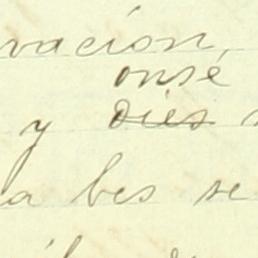 vacion,
onse
y dies
a bes se